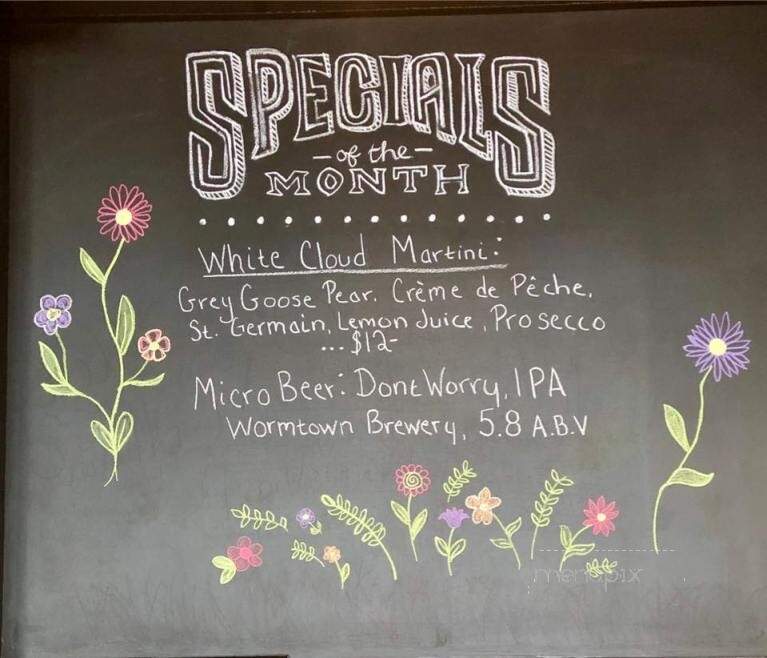 SPECIALS
- of the -
MONTH
White Cloud Martini:
Grey Goose Pear, Crème de Pêche,
St. Germain, Lemon Juice, Prosecco
... $12-
Micro Beer: Dont Worry, IPA
Wormtown Brewery, 5.8 A.B.V
menupix